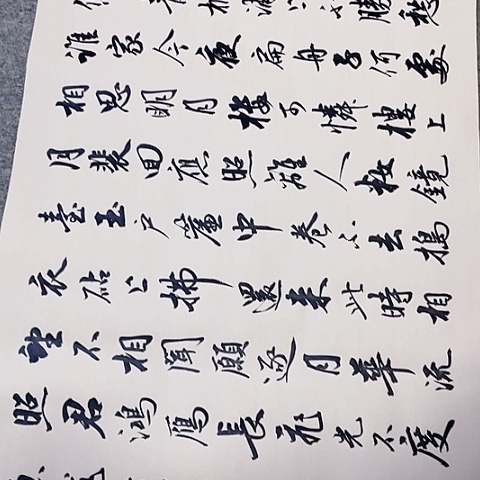 浦上不勝愁
誰家今夜扁舟子何處
相思明月樓可憐樓上
月裴回應照離人妝鏡
臺玉戶簾中卷不去搗
衣砧上拂還來此時相
望不相聞願逐月華流
照君鴻鴈長飛光不度